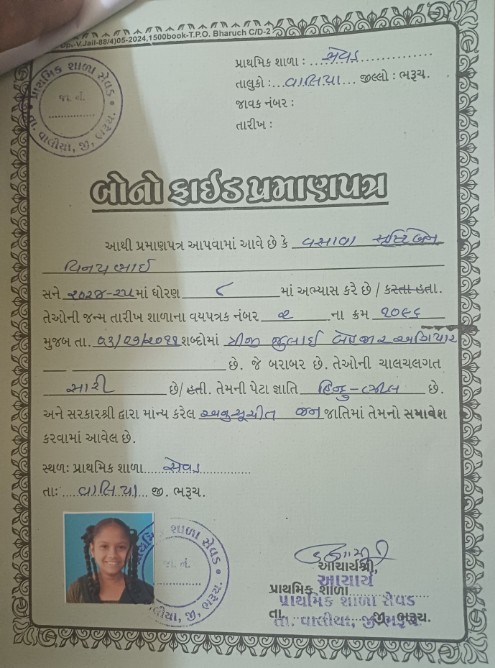 V.Jall-88(4)05-2024,1500book-T.P.O. Bharuch C/D-2
પ્રાથમિક શાળા : સેવડ
તાલુકો : વાલિયા જીલ્લો : ભરૂચ.
જાવક નંબર :
તારીખ :
પ્રાથમિક શાળા સેવડ
જા. નં.
તા. વાલીયા, જી. ભરૂચ.
બોનો ફાઈડ પ્રમાણપત્ર
આથી પ્રમાણપત્ર આપવામાં આવે છે કે વસાવા બેન
વિનયભાઈ
સને ૨૦૨૪-૨૫માં ધોરણ ૮ માં અભ્યાસ કરે છે / કરતા હતા.
તેઓની જન્મ તારીખ શાળાના વયપત્રક નંબર ૨ ના ક્રમ ૧૦૯૬
મુજબ તા. ૦૩/૦૭/૨૦૧૧ શબ્દોમાં ત્રીજી જુલાઈ બે હજાર અગિયાર
છે. જે બરાબર છે. તેઓની ચાલચલગત
સારી છે/ હતી. તેમની પેટા જ્ઞાતિ હિન્દુ-ભીલ છે.
અને સરકારશ્રી દ્વારા માન્ય કરેલ અનુસૂચીત જન જાતિમાં તેમનો સમાવેશ
કરવામાં આવેલ છે.
સ્થળ: પ્રાથમિક શાળા સેવડ
તા: વાલિયા જી. ભરૂચ.
શાળા સેવડ
જા. નં.
વાલીયા, જી. ભરૂચ.
આચાર્યશ્રી,
આચાર્ય
પ્રાથમિક શાળા
પ્રાથમિક શાળા સેવડ
તા. જી. ભરૂચ.
તા. વાલીયા, જી. ભરૂચ